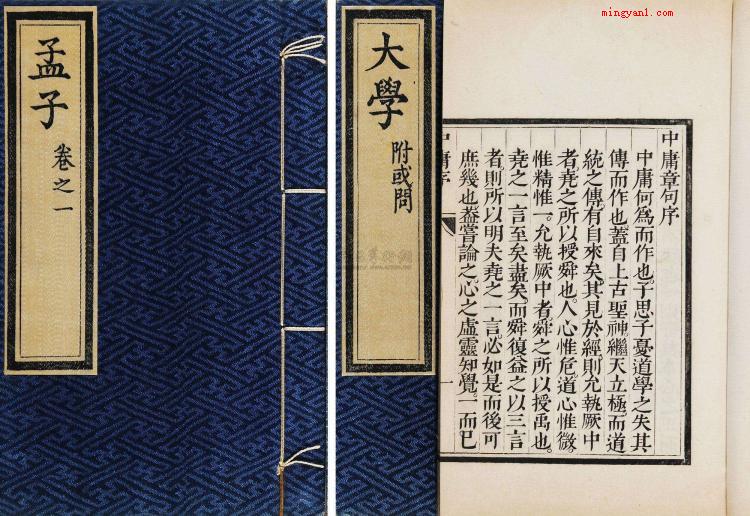 mingyan1.com
孟子
卷之一
大學
附或問
中庸章句序
中庸何為而作也子思子憂道學之失其
傳而作也蓋自上古聖神繼天立極而道
統之傳有自來矣其見於經則允執厥中
者堯之所以授舜也人心惟危道心惟微
惟精惟一允執厥中者舜之所以授禹也
堯之一言至矣盡矣而舜復益之以三言
者則所以明夫堯之一言必如是而後可
庶幾也蓋嘗論之心之虛靈知覺一而已
中庸序
一